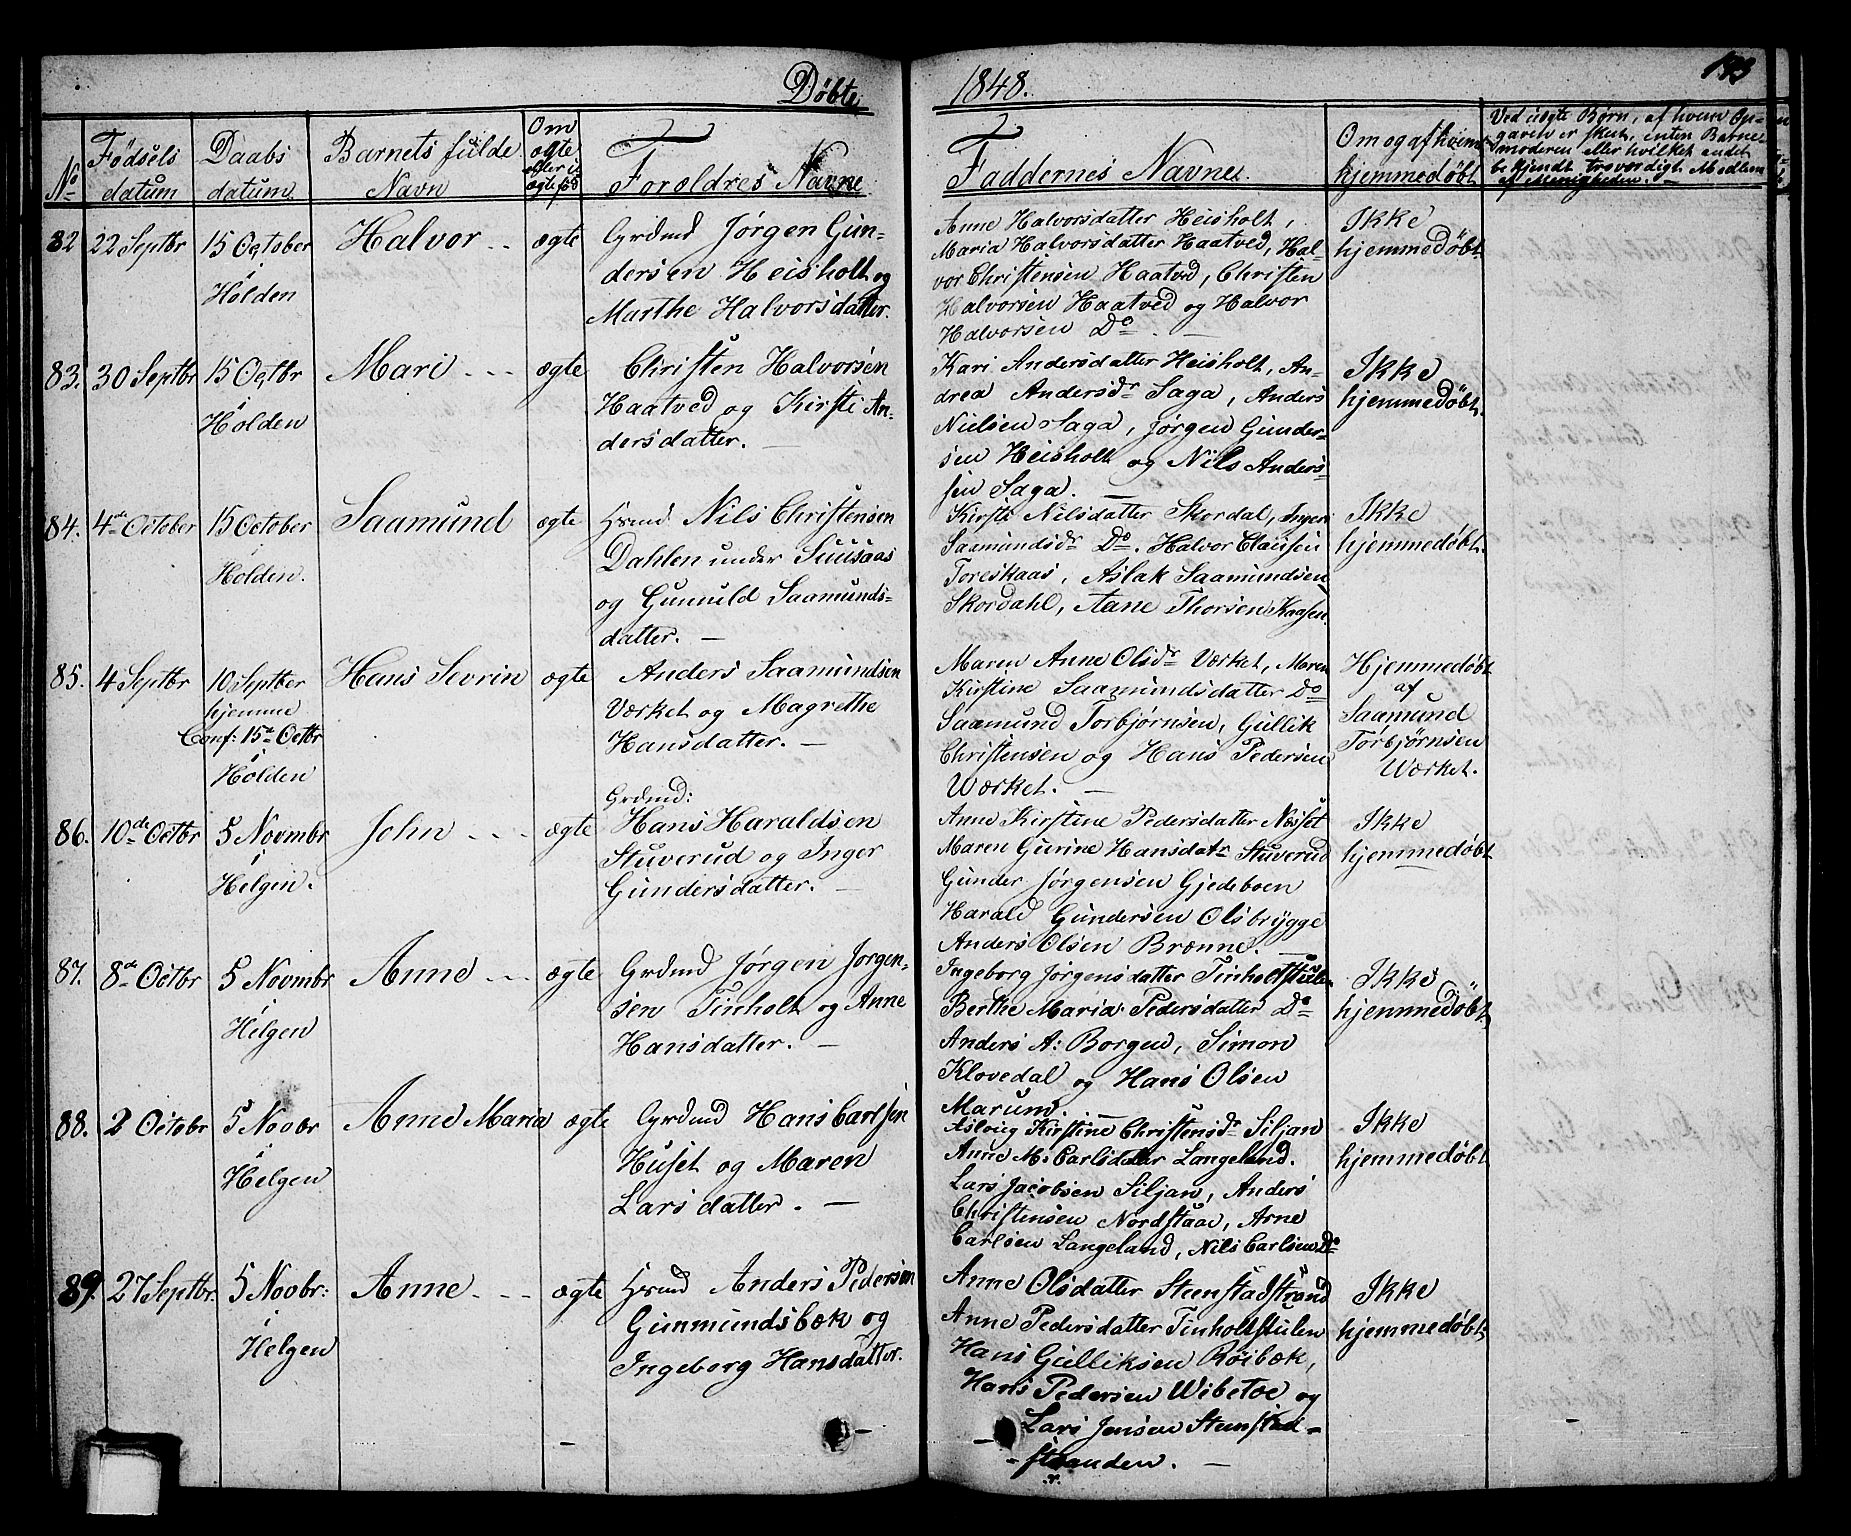 Døbte 1848.
№
Fødsels datum
Daabs datum
Barnets fulde Navn
Om ægte eller
Forældres Navne
Faddernes Navne
Om og af hvem hjemmedøbt
Ved uægte Børn, af hvem Op-
gaven er skeet, enten Barne-
moderen eller hvilket andet
bekjendt troværdigt Medlem
af Menigheden. —
82
22 Septbr
15 October
i
Holden
Halvor
ægte
Grdmd Jørgen Gun-
dersen Heisholt og
Marthe Halvorsdatter.
Anne Halvorsdatter Heisholt,
Maria Halvorsdatter Haatved, Hal-
vor Christensen Haatved, Christen
Halvorsen Haatved og Halvor
Halvorsen Do
Ikke
hjemmedøbt
83.
30 Septbr
15 Octbr
i
Holden
Mari
ægte
Christen Halvorsen
Haatved og Kirsti An-
dersdatter. —
Kari Andersdatter Heisholt, An-
drea Andersdr Saga, Anders
Nielsen Saga, Jørgen Gunder-
sen Heisholt og Nils Anders-
sen Saga. —
Ikke
hjemmedøbt.
84.
4de October
15 October
i
Holden.
Saamund
ægte
Hsmd Nils Christensen
Dahlen under Suusaas
og Gunuld Saamunds-
datter. —
Kirsti Nilsdatter Skordal, Inger
Saamundsdr Do. Halvor Clausen
Toreskaas, Aslak Saamundsen
Skordahl, Aane Thorsen Kaasen.
Ikke
hjemmedøbt.
85.
4 Septbr
10 Septber
hjemme
Conf: 15de Octbr
i
Holden
Hans Sevrin
ægte
Anders Saamundsen
Værket og Magrethe
Hansdatter. —
Maren Anne Olsdr Værket, Maren
Kirstine Saamundsdatter Do
Saamund Torbjørnsen, Gullik
Christensen og Hans Pedersen
Værket. —
Hjemmedøbt
af
Saamund
Torbjørnsen
Værket.
86.
10de Octbr
5 Novmbr
i
Helgen.
John
ægte
Grdmd:
Hans Haraldsen
Stuverud og Inger
Gundersdatter. —
Anne Kirstine Pedersdatter Næset
Maren Gurine Hansdatr Stuverud
Gunder Jørgensen Gjedeboen
Harald Gundersen Olsbrygge
Anders Olsen Brenne. —
Ikke
hjemmedøbt
87.
8de Octbr
5 Novmbr
i
Helgen
Anne
ægte
Grdmd Jørgen Jørgen-
sen Tinholt og Anne
Hansdatter. —
Ingeborg Jørgensdatter Tinholtstulen
Berthe Maria Pedersdatter Do
Anders A: Borgen, Simon
Klovedal og Hans Olsen
Marum. —
Ikke
hjemmedøbt.
88.
2 Octobr
5 Novbr
i
Helgen
Anne Maria
ægte
Grdmd Hans Carlsen
Huset og Maren
Larsdatter. —
Aslaug Kirstine Christensdr Siljan
Anne M: Carlsdatter Langeland.
Lars Jacobsen Siljan, Anders
Christensen Nordstaae, Arne
Carlsen Langeland, Nils Carlsen Do
Ikke
hjemmedøbt
89.
27 Septbr.
5 Novbr:
i
Helgen
Anne
ægte
Hsmd Anders Pedersen
Gunmundsbæk og
Ingeborg Hansdatter.
Anne Olsdatter Steenstadstrand
Anne Pedersdatter Tinholtstulen
Hans Gulliksen Røibæk,
Hans Pedersen Wibetoe og
Lars Jensen Steenstad-
stranden. —
Ikke
hjemmedøbt